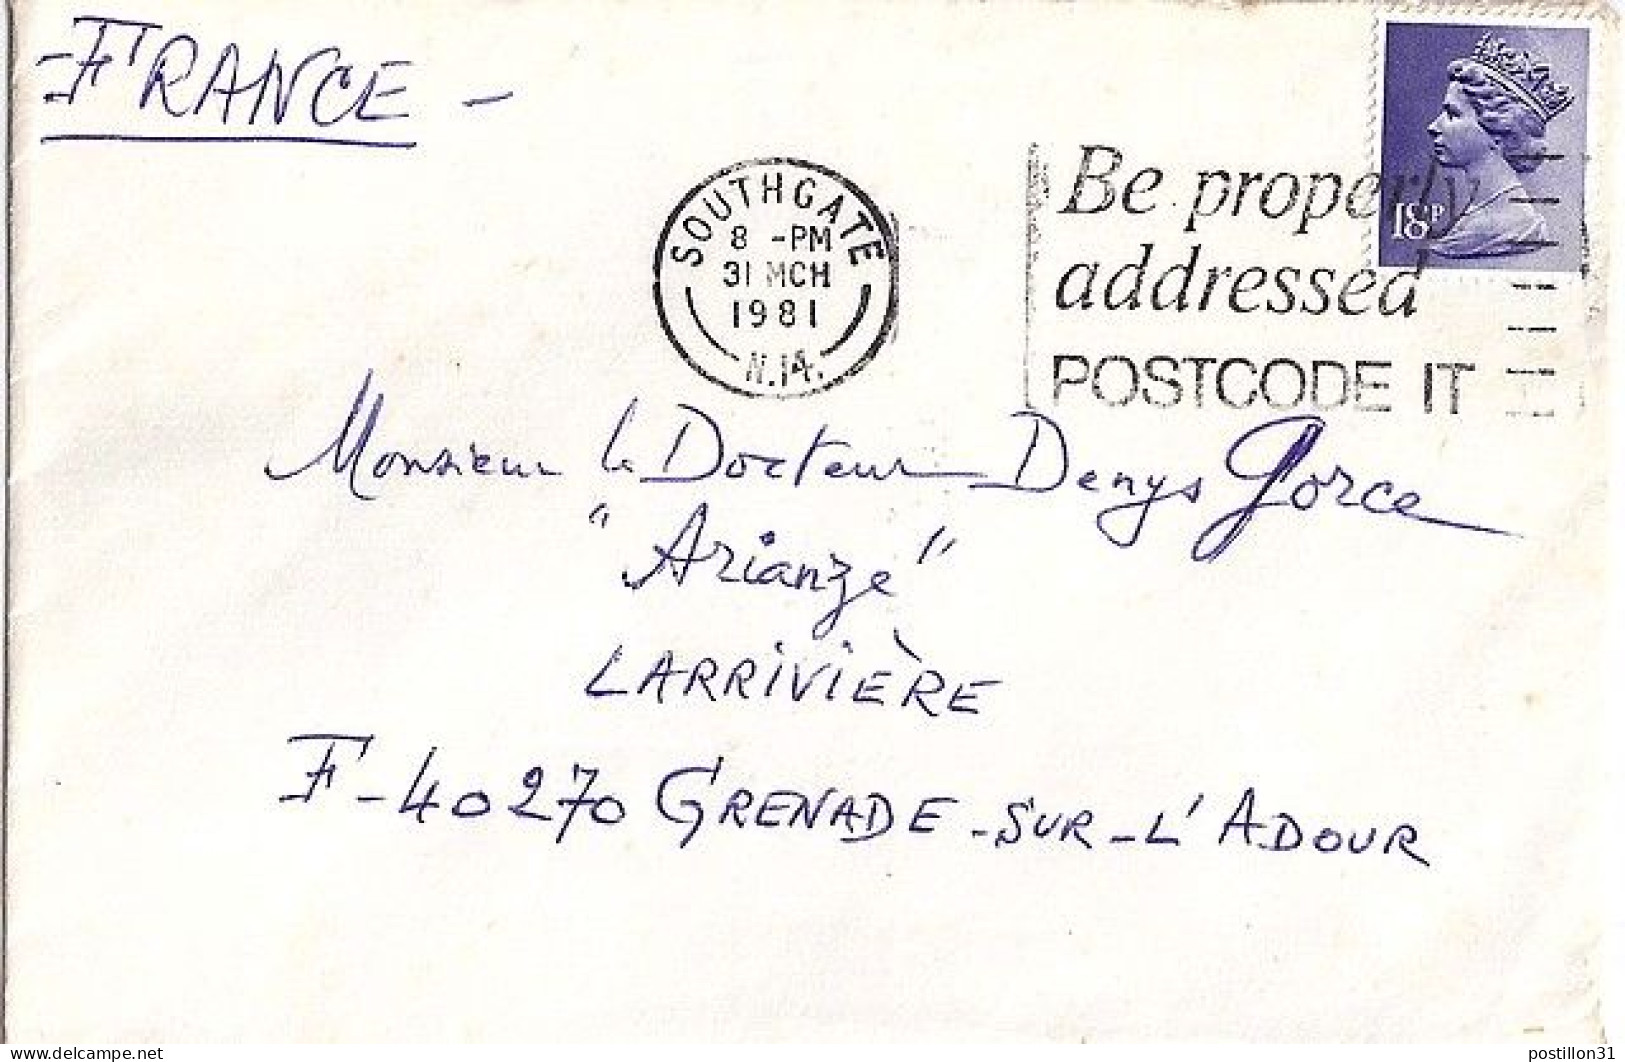 - FRANCE -
SOUTHGATE
8 -PM
31 MCH
1981
N.14.
Be properly
addressed
POSTCODE IT
18P
Monsieur le Docteur Denys Gorce
"Arianze"
LARRIVIÈRE
F-40270 GRENADE-SUR-L'ADOUR
delcampe.net
postillon31